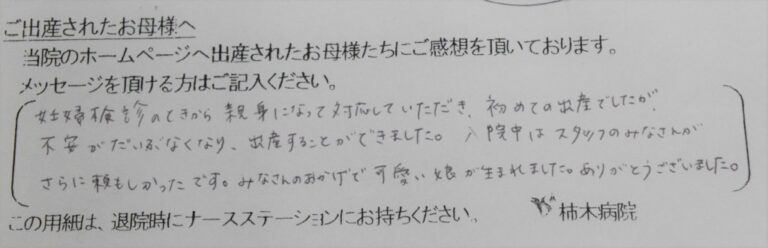 ご出産されたお母様へ
当院のホームページへ出産されたお母様たちにご感想を頂いております。
メッセージを頂ける方はご記入ください。
妊婦検診のときから親身になって対応していただき、初めての出産でしたが、
不安がだいぶなくなり、出産することができました。入院中はスタッフのみなさんが
さらに頼もしかったです。みなさんのおかげで可愛い娘が生まれました。ありがとうございました。
この用紙は、退院時にナースステーションにお持ちください。 柿木病院